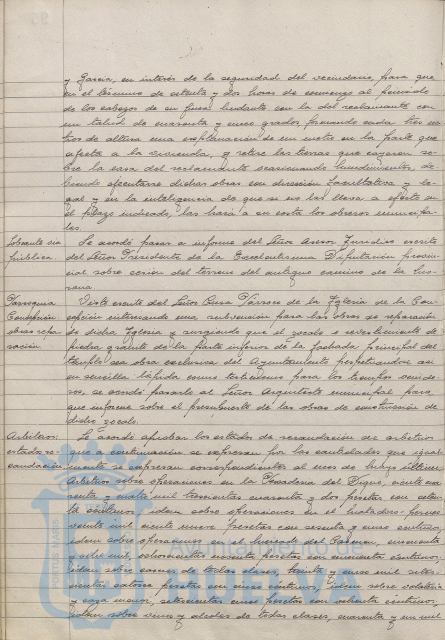 y García, en interés de la seguridad del vecindario, para que
en el término de setenta y dos horas de comienzo al peinado
de los cabezos de su finca lindante con la del reclamante con
un talud de cuarenta y cinco grados, formando cada tres me-
tros de altura una explanación de un metro en la parte que
afecta a la vivienda, y retire las tierras que cayeron so-
bre la casa del reclamante ocasionando hundimientos, de-
biendo ejecutarse dichas obras con dirección facultativa y le-
gal y en la inteligencia de que si no las lleva a efecto en
el plazo indicado, las hará a su costa los obreros municipa-
les.
Sobrante vía
pública
Se acordó pasar a informe del Señor Asesor Jurídico escrito
del Señor Presidente de la Excelentísima Diputación provin-
cial sobre cesión del terreno del antiguo camino de la
Parroquia
Concepción
obras repa-
ración
Visto escrito del Señor Cura Párroco de la Iglesia de la Con-
cepción interesando una subvención para las obras de reparación
de dicha Iglesia y sugiriendo que el zócalo o revestimiento de
piedra granito de la parte inferior de la fachada principal del
templo sea obra exclusiva del Ayuntamiento perpetuándose así
en sencilla lápida como testimonio para los tiempos venide-
ros, se acordó pasarlo al Señor Arquitecto municipal para
que informe sobre el presupuesto de las obras de construcción de
dicho zócalo.
Arbitrios:
estados re-
caudación
Se acordó aprobar los estados de recaudación de arbitrios
que a continuación se expresan por las cantidades que igual-
mente se expresan correspondientes al mes de último
Arbitrios sobre operaciones en la Pescadería del Dique, ciento cua-
renta y cuatro mil trescientas cuarenta y dos pesetas con
ta céntimos; idem sobre operaciones en el Matadero
veinte mil ciento nueve pesetas con sesenta y cinco céntimos,
idem sobre operaciones en el Mercado del Carmen, cincuenta
y siete mil, ochocientas ochenta pesetas con cincuenta céntimos;
idem sobre carnes de todas clases, treinta y cinco mil sete-
cientas catorce pesetas con cinco céntimos, idem sobre volatería
y caza menor, setecientas cinco pesetas con ochenta céntimos;
idem sobre vinos y alcoholes de todas clases, cuarenta y un mil
PORTUS MARIS